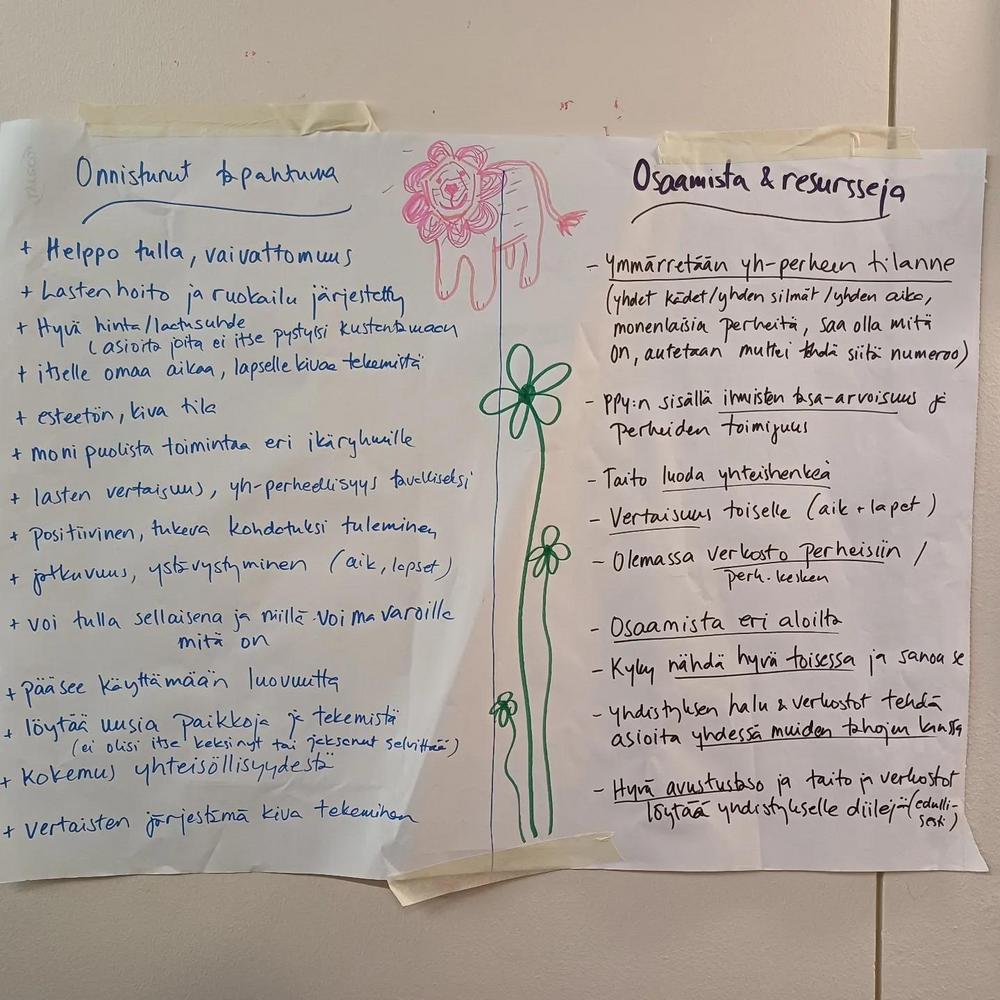 Onnistunut tapahtuma
+ Helppo tulla, vaivattomuus
+ Lasten hoito ja ruokailu järjestetty
+ Hyvä hinta/laatusuhde
(asioita joita ei itse pystyisi kustantamaan
+ itselle omaa aikaa, lapselle kivaa tekemistä
+ esteetön, kiva tila
+ moni puolista toimintaa eri ikäryhmille
+ lasten vertaisuus, yh-perheellisyys tavalliseksi
+ positiivinen, tukeva kohdatuksi tuleminen
+ jatkuvuus, ystävystyminen (aik, lapset)
+ voi tulla sellaisena ja millä voimavaroilla
mitä on
+ pääsee käyttämään luovuutta
+ löytää uusia paikkoja ja tekemistä
(ei olisi itse keksinyt tai jaksanut selvittää)
+ kokemus yhteisöllisyydestä
+ vertaisten järjestämä kiva tekeminen
Osaamista & resursseja
- Ymmärretään yh-perheen tilanne
(yhdet kädet/yhden silmät/yhden aika,
monenlaisia perheitä, saa olla mitä
on, autetaan muttei tehdä siitä numeroo)
- PPY:n sisällä ihmisten tasa-arvoisuus ja
perheiden toimijuus
- Taito luoda yhteishenkeä
- Vertaisuus toiselle (aik + lapet)
- Olemassa verkosto perheisiin /
perh. kesken
- Osaamista eri aloilta
- Kyky nähdä hyvä toisessa ja sanoa se
- yhdistyksen halu & verkostot tehdä
asioita yhdessä muiden tahojen kanssa
- Hyvä avustustaso ja taito ja verkostot
löytää yhdistykselle diilejä (edulli-
sesti)